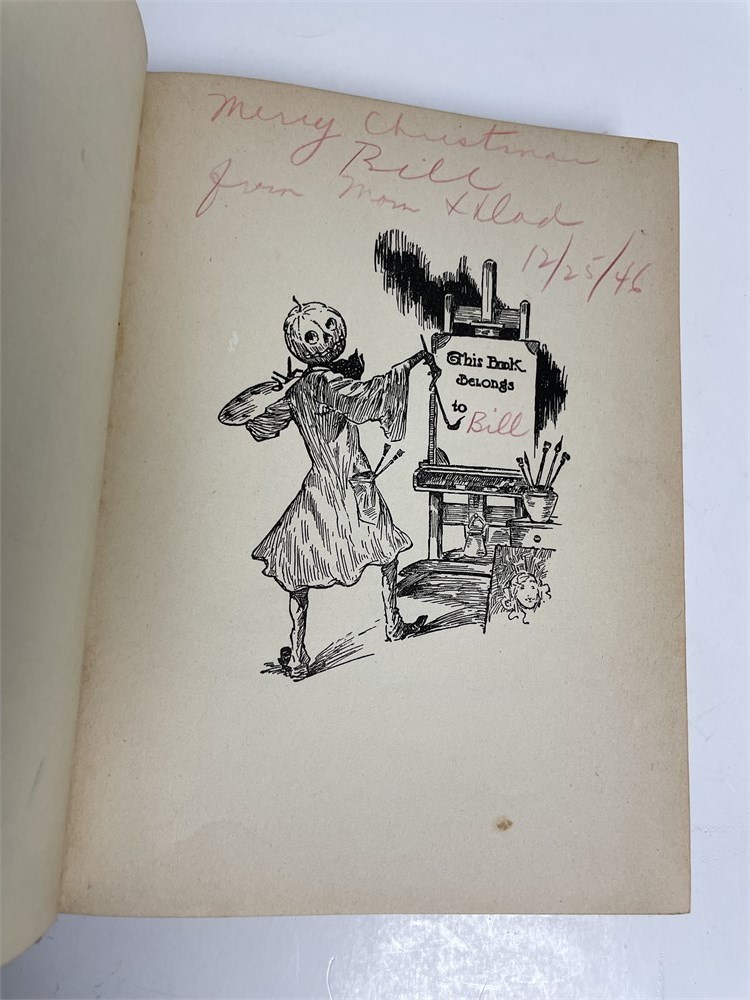 Merry Christmas
Bill
from Mom & Dad
12/25/46
This Book
Belongs
to
Bill